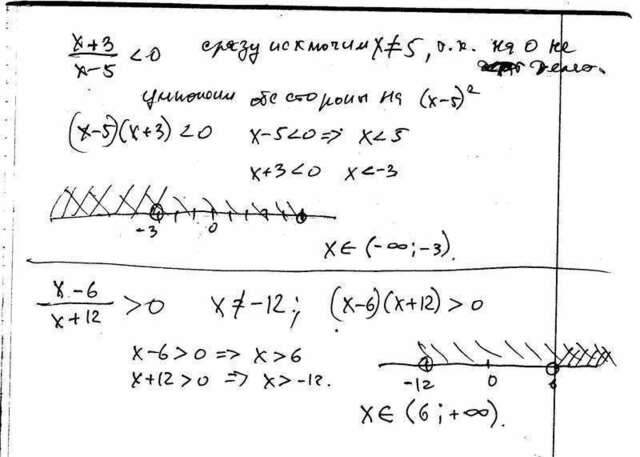 x+3/x-5 <0 сразу исключим x≠5, т.к. на 0 не делят.
умножим обе стороны на (x-5)²
(x-5)(x+3)<0 x-5<0 => x<5
x+3<0 x<-3
-3 0
x∈(-∞;-3).
x-6/x+12 >0 x≠-12; (x-6)(x+12)>0
x-6>0 => x>6
x+12>0 => x>-12.
-12 0 6
x∈(6;+∞).